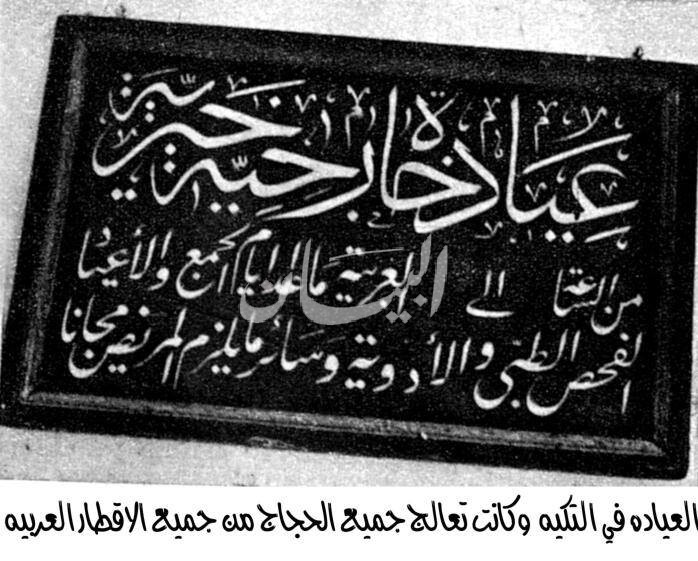 عيادة خارجية خيرية
من الساعة الى العربية ماعدا ايام الجمع والأعياد
الفحص الطبي والأدوية وسائر ما يلزم المريض مجانا
البيان
العياده في التكيه وكانت تعالج جميع الحجاج من جميع الاقطار العربيه